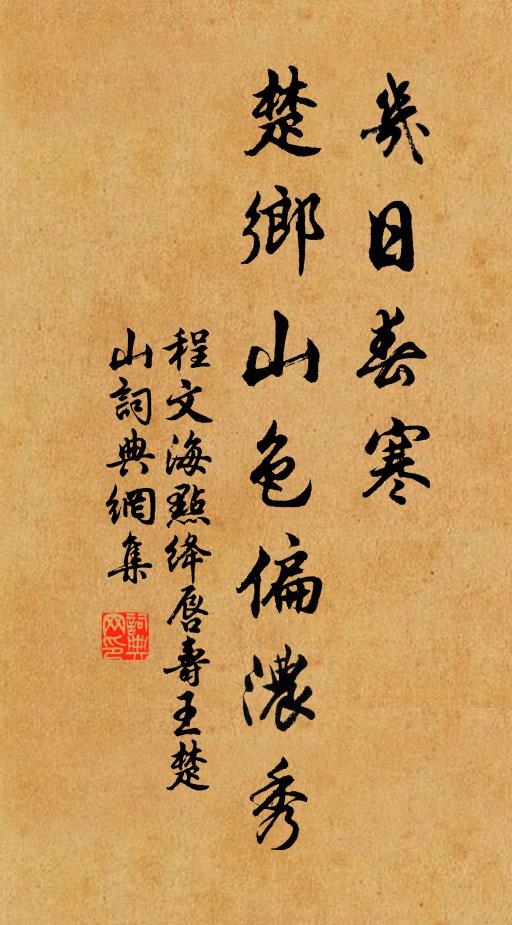 幾日春寒
楚鄉山色偏濃秀
程文海點絳唇壽王楚
山詞典網集
詞典
网印